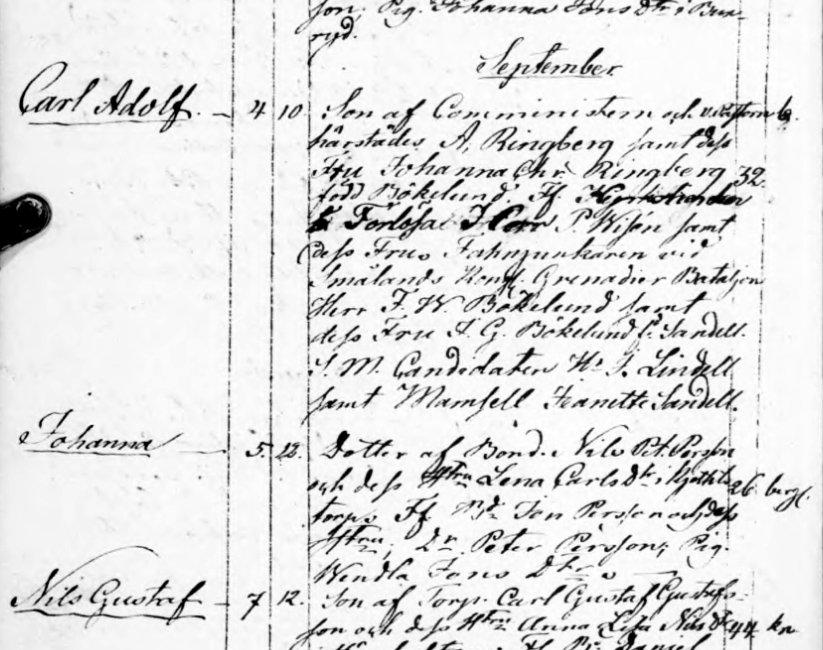 son. Pig. Johanna Jons Dtr i Bux-
ryd.
September.
Carl Adolf. - 4 10. Son af Comministern och v. Pastorn
härstädes A. Ringberg samt dess
Fru Johanna Chr. Ringberg 32.
född Bökelund. Ff.
Förlösa Herr P. Wisén samt
dess Fru, Fahnjunkaren vid
Smålands Kongl. Grenadier Bataljon
Herr F. W. Bökelund samt
dess Fru A. G. Bökelund f. Sandell.
S. M. Candidaten Hr J. Lindell
samt Mamsell Jeanette Sandell.
Johanna - 5. 12. Dotter af Bond. Nils Pet. Persson
och dess Hstru Lena Carls Dtr i 26. bergl.
torp. Ff. Bd. Jon Persson och dess
Hstru, Dr. Peter Persson, Pig.
Wendla Jons Dtr
Nils Gustaf - 7 12. Son af Torp. Carl Gustaf Gustafs-
son och dess Hstru Anna Lisa Nils Dr 44 kn
Ff. Daniel